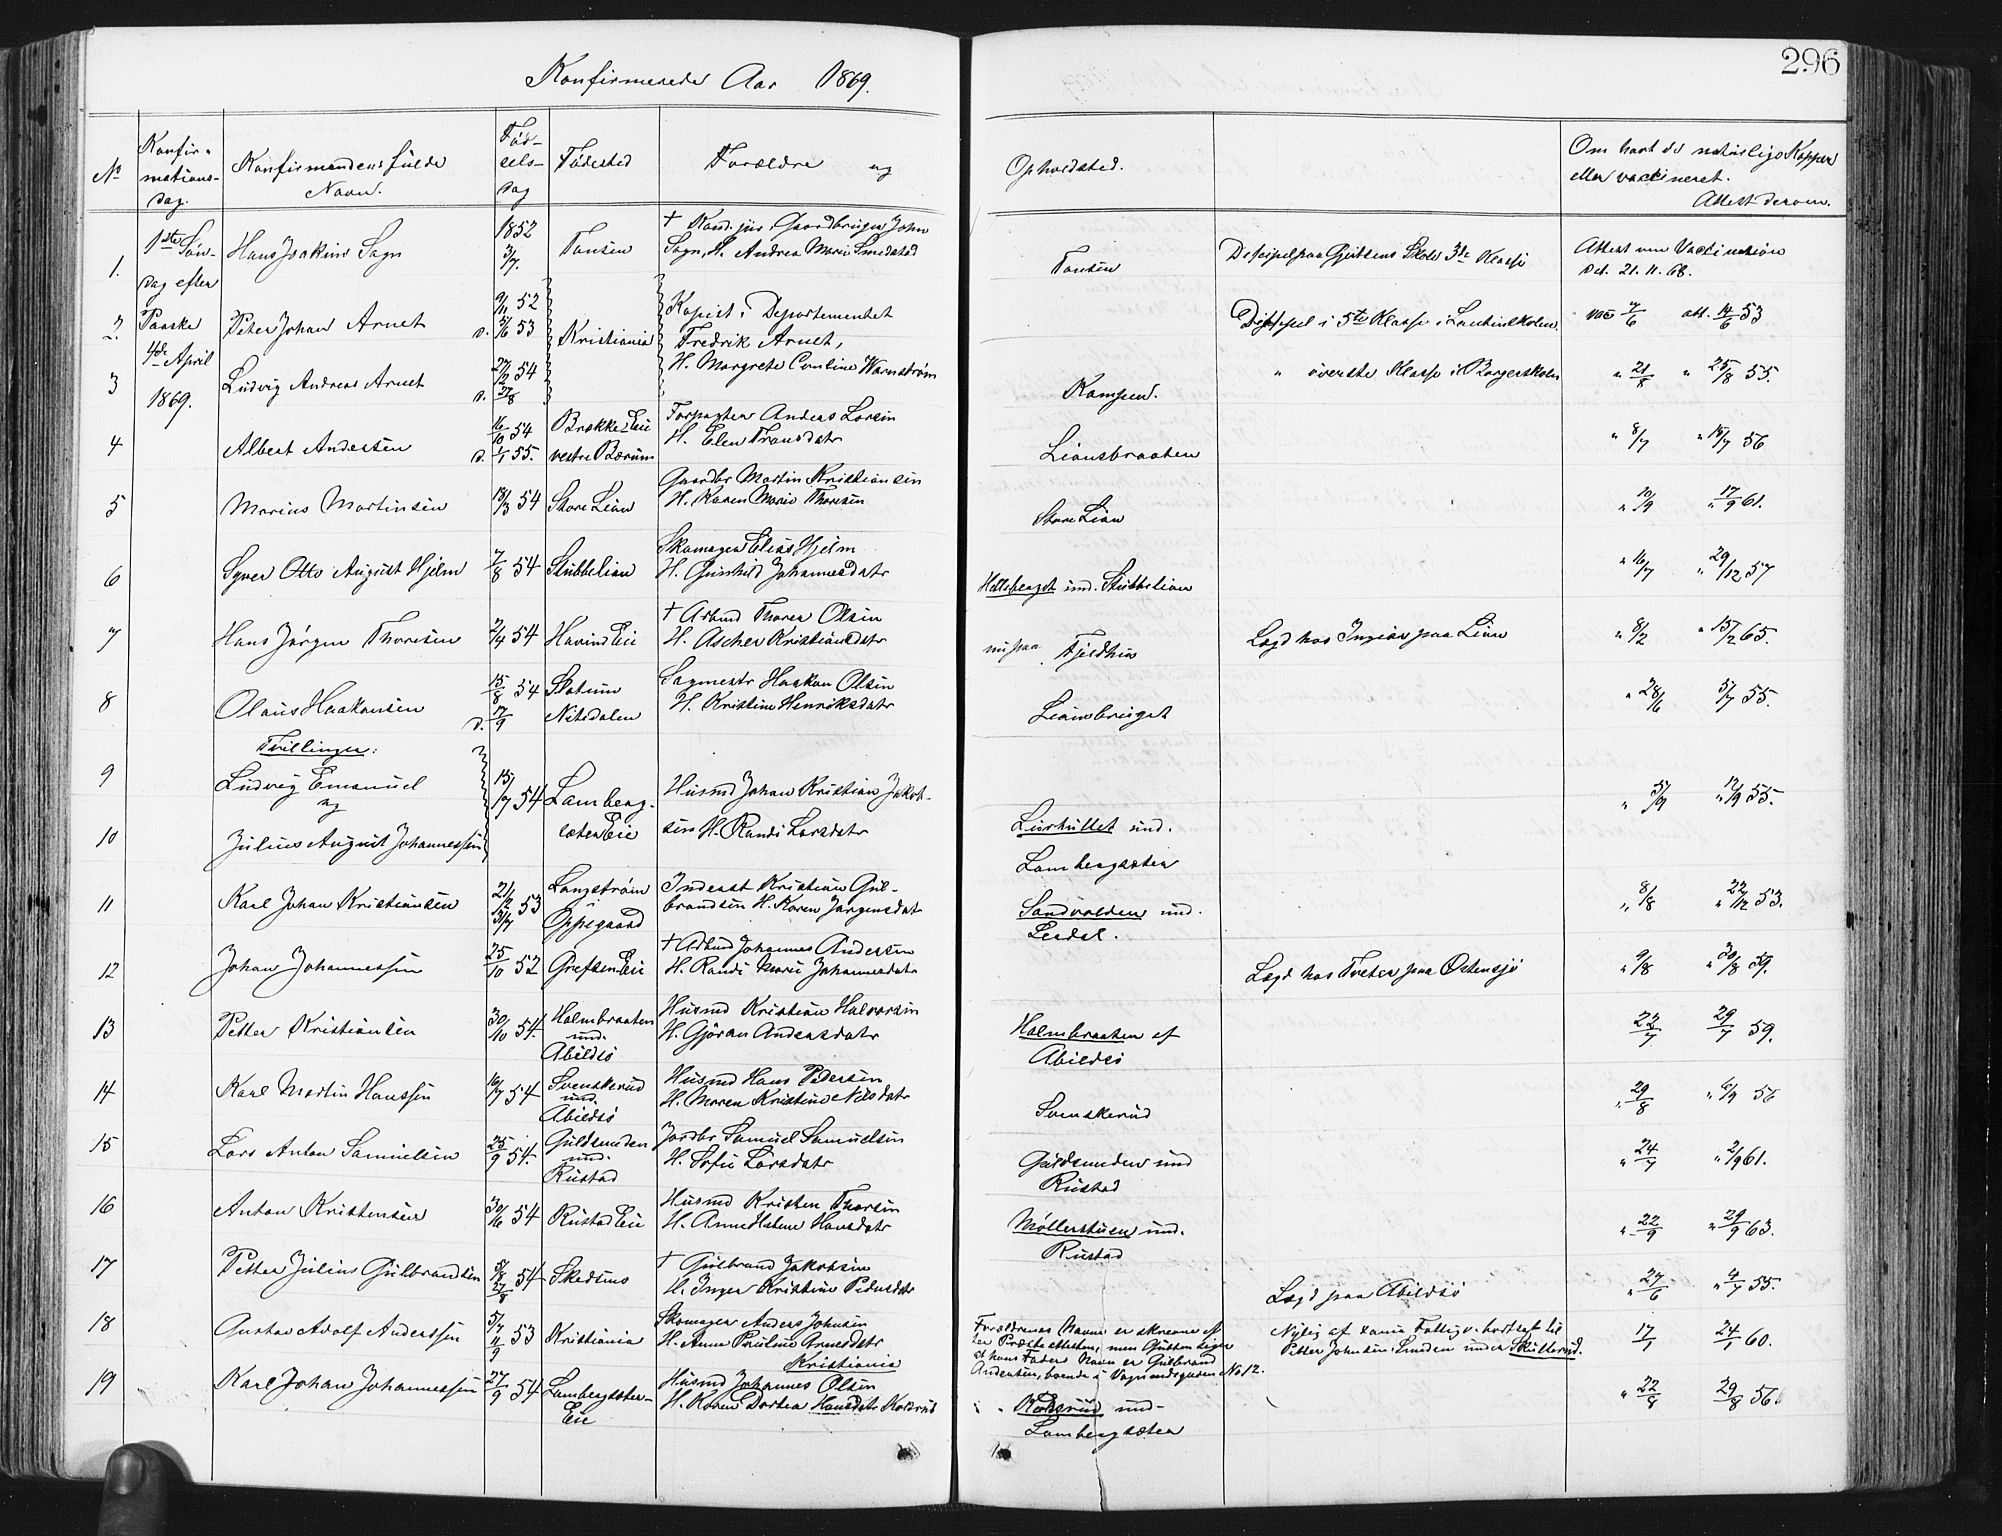 296
Konfirmerede Aar 1869.
No
Konfir-
mations-
dag.
Konfirmandens fulde
Navn.
Fød-
sels-
dag
Fødested
Forældre og
Opholdsted.
Om havt de naturlige Kopper
eller vaccineret.
Attest derom.
1ste Søn-
dag efter
Paaske
4de April
1869.
1. Hans Joakim Sogn 1852 3/7. Tonsen
† Kand. jur. Gaardbruger John
Sogn, H. Andrea Marie Smedstad
Tonsen
Discipel paa Gjertsens Skole 3de Klasse
Attest om Vaccination
Det. 21. 11. 68.
2. Peter Johan Arnet 9/11 52 d. 5/6 53
Kristiania
Kopist i Departementet
Fredrik Arnet,
H. Margrete Caroline Warnstrøm
Discipel i 5te Klasse i Latinskolen
vac 7/6 att. 14/6 53
3 Ludvig Andreas Arnet 27/2 54 d. 27/8
Kampen.
" øverste Klasse i Borgerskolen
" 21/8 " 25/8 55.
4 Albert Andersen 16/10 54 d. 1/1 55.
Brække Eie
vestre Bærum
Forpagter Anders Larsen
H. Elen Fransdatr
Liansbraaten
" 8/7 " 15/7 56
5 Marius Martinsen 18/3 54 Store Lian
Gaardbr Martin Kristiansen
H. Karen Marie Thoresen
Store Lian
" 10/9 " 17/9 61.
6 Syver Otto August Hjelm 7/8 54 Stubbelian
Skomager Elias Hjelm
H. Gunhild Johannesdatr
Hellebergt und. Stubbelian
" 16/7 " 29/12 57
7 Hans Jørgen Thoresen 2/4 54 Havind Eie
† Arbmd Thorer Olsen
H. Ascher Kristiansdatr
nu paa Fjeldhus
Lægd hos Ingier paa Lian
" 8/2 " 15/2 65.
8 Olaus Haakonsen 15/8 54 d. 17/9
Slatum
Nitedalen
Sagmestr Haakon Olsen
H. Kristine Henriksdatr
Liansbruget
" 28/6 5/7 55.
Tvillinger:
9 Ludvig Emanuel
og
10 Julius August Johannessen
15/7 54
Lamberg-
sæter Eie
Husmd Johan Kristian Jakob-
sen H. Randi Larsdatr
Liarhullet und.
Lambergsæter
" 5/9 " 12/9 55.
11 Karl Johan Kristiansen 21/12 53 31/7
Langstrøm
i
Oppegaard
Inderst Kristian Gul-
brandsen H. Karen Jørgensdatr
Sandvolden und.
Leedal.
" 8/8 " 22/12 53.
12 Johan Johannessen 25/10 52 Grefsen Eie
† Arbmd Johannes Andersen
H. Randi Marie Johannesdatr
Lægd hos Treter paa Østensjø
" 9/8 " 30/8 59.
13 Petter Kristiansen 30/10 54.
Holmbraaten
und.
Abildsø
Husmd Kristian Halvorsen
H. Gjøran Andersdatr
Holmbraaten af
Abildsø
22/7 29/7 59.
14 Karl Martin Hanssen 10/7 54
Svenskerud
und.
Abildsø
Husmd Hans Pedersen
H. Maren Kristine Nilsdatr
Svenskerud
" 29/8 " 6/9 56
15 Lars Anton Samuelsen 25/9 54.
Guldsmeden
und.
Rustad
Jordbr Samuel Samuelsen
H. Sofie Larsdatr
Guldsmeden und
Rustad
" 24/7 " 2/9 61.
16 Anton Kristensen 30/6 54 Rustad Eie
Husmd Kristen Thorsen
H. Anne Helene Hansdatr
Møllerstuen und.
Rustad
" 22/9 " 29/9 63.
17 Petter Julius Gulbrandsen 54 27/8 Skedsmo
† Gulbrand Jakobsen
H. Inger Kristine Pedersdatr
Lægd paa Abildsø
" 27/6 " 4/7 55.
18 Gustav Adolf Anderssen 5/7 53 11/9 Kristiania
Skomager Anders Johnsen
H. Anne Pauline Arnesdatr
Kristiania
Forældrenes Navne er skrevne ef-
ter Præsteattesten, men Gutten siger
at hans Faders Navn er Gulbrand
Andersen, boende i Vognmdsgaden No 12.
Nylig af Xania Fattigv. bortsat til
Petter Johnsen Smeden under Skullerud.
17/7 24/7 60.
19 Karl Johan Johannessen 27/9 54
Lambergsæter-
Eie
Husmd Johannes Olsen
H. Karen Dortea Hansdatr Kolsrud
Kolsrud und-
Lambergsæter
" 22/8 29/8 56